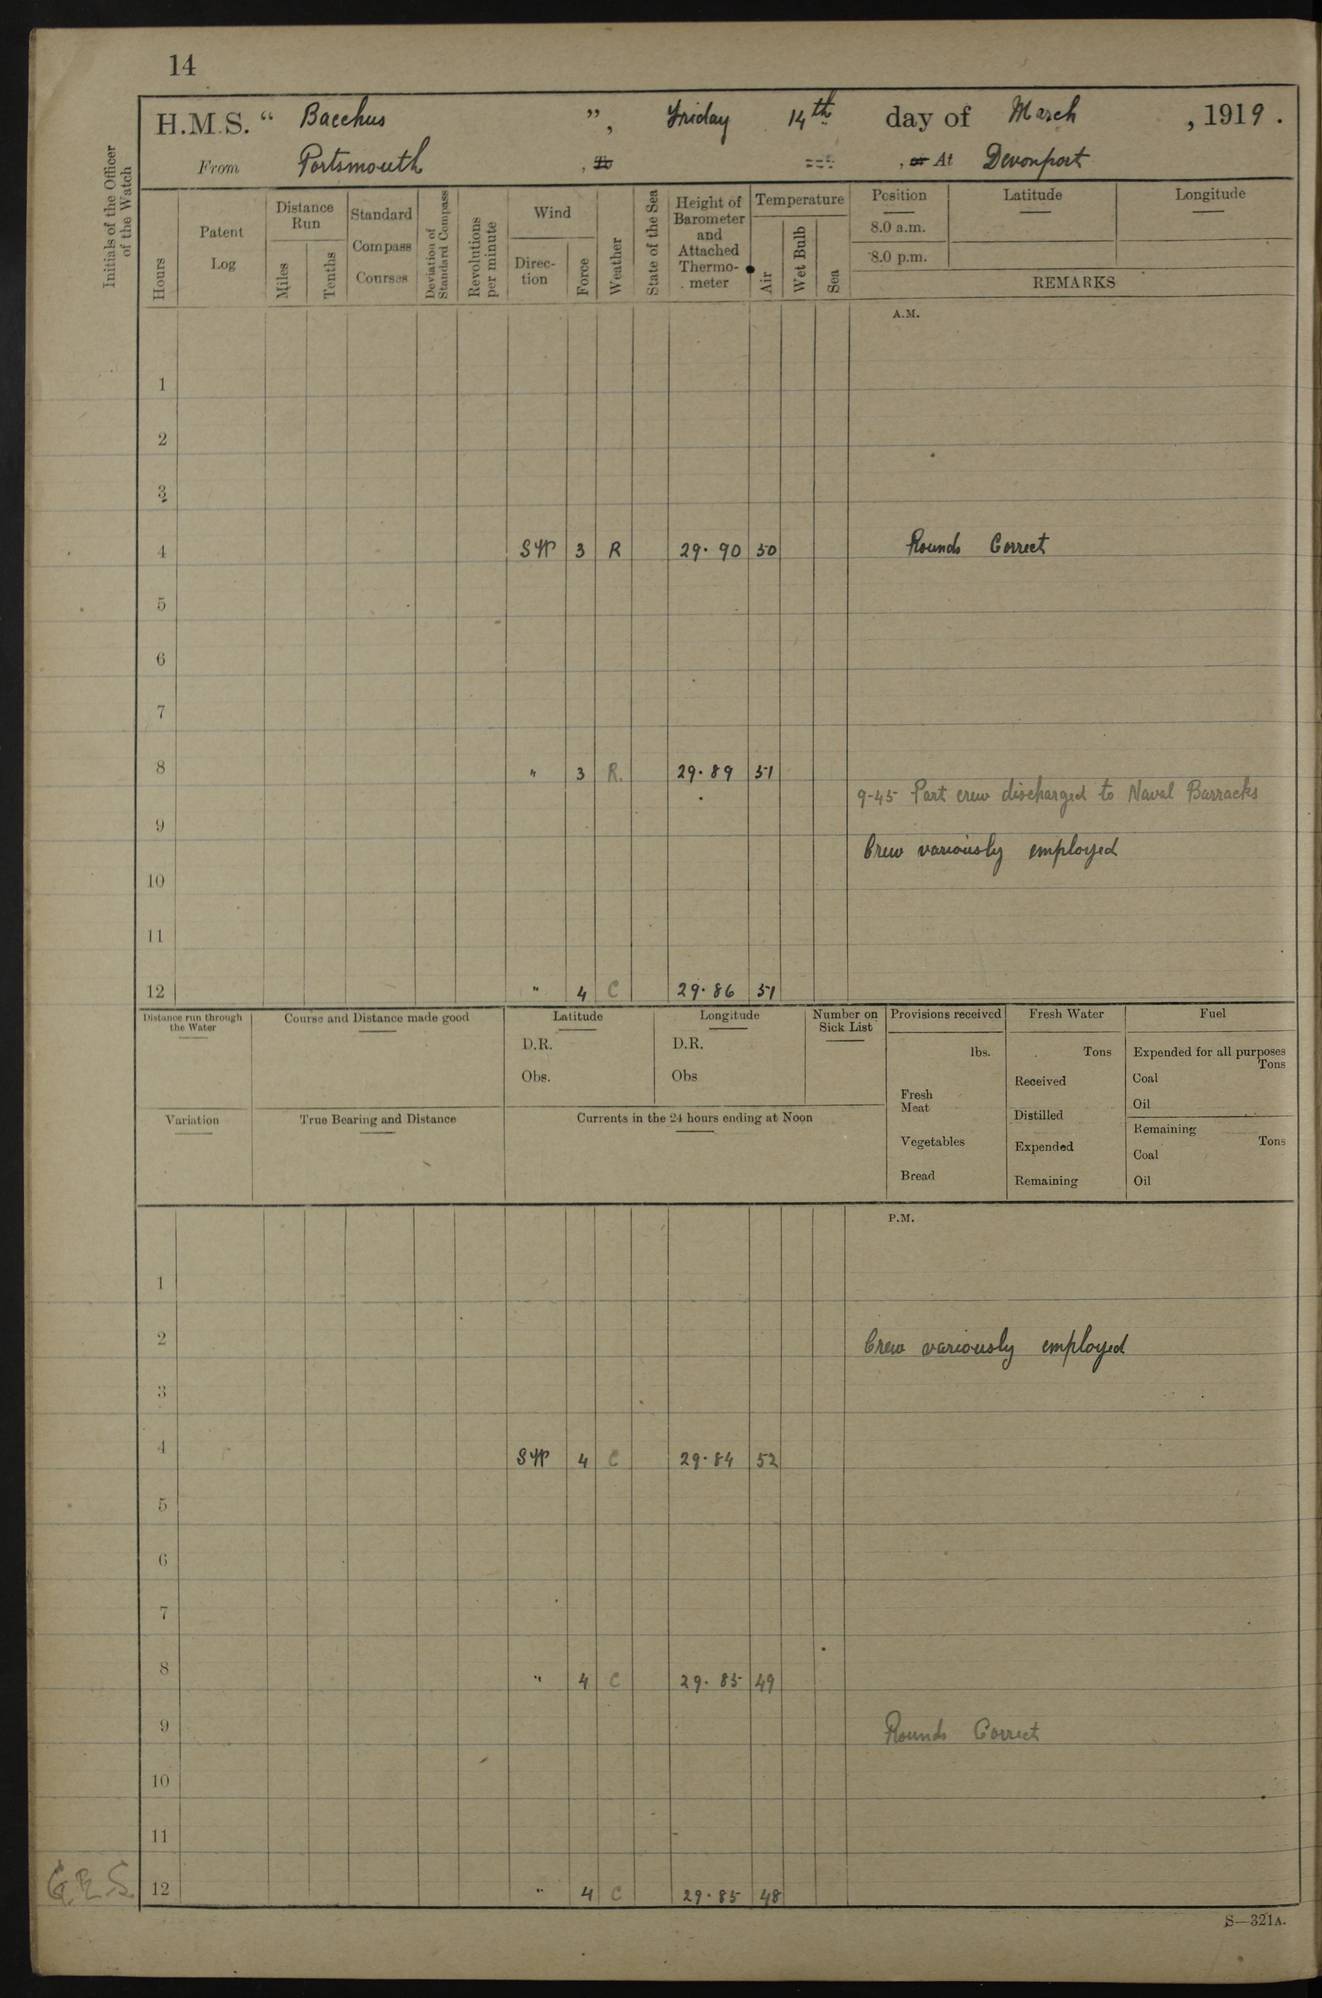 14
H.M.S. “ Bacchus ”, Friday 14th day of March , 1919 .
From Portsmouth , to , or At Devonport
Initials of the Officer of the Watch
Hours
Patent Log
Distance Run
Miles
Tenths
Standard Compass Courses
Deviation of Standard Compass
Revolutions per minute
Wind
Direc-tion
Force
Weather
State of the Sea
Height of Barometer and Attached Thermo-meter
Temperature
Air
Wet Bulb
Sea
Position
Latitude
Longitude
8.0 a.m.
8.0 p.m.
REMARKS
A.M.
1
2
3
4 SW 3 R 29.90 50 Rounds Correct
5
6
7
8 " 3 R. 29.89 51
9-45 Part crew discharged to Naval Barracks
9
Crew variously employed
10
11
12 " 4 C 29.86 51
Distance run through the Water
Course and Distance made good
Latitude
D.R.
Obs.
Longitude
D.R.
Obs
Number on Sick List
Provisions received
lbs.
Fresh Meat
Vegetables
Bread
Fresh Water
Tons
Received
Distilled
Expended
Remaining
Fuel
Expended for all purposes
Tons
Coal
Oil
Remaining
Tons
Coal
Oil
Variation
True Bearing and Distance
Currents in the 24 hours ending at Noon
P.M.
1
2 Crew variously employed
3
4 SW 4 C 29.84 52
5
6
7
8 " 4 C 29.85 49
9 Rounds Correct
10
11
G.R.S. 12 " 4 C 29.85 48
S—321A.